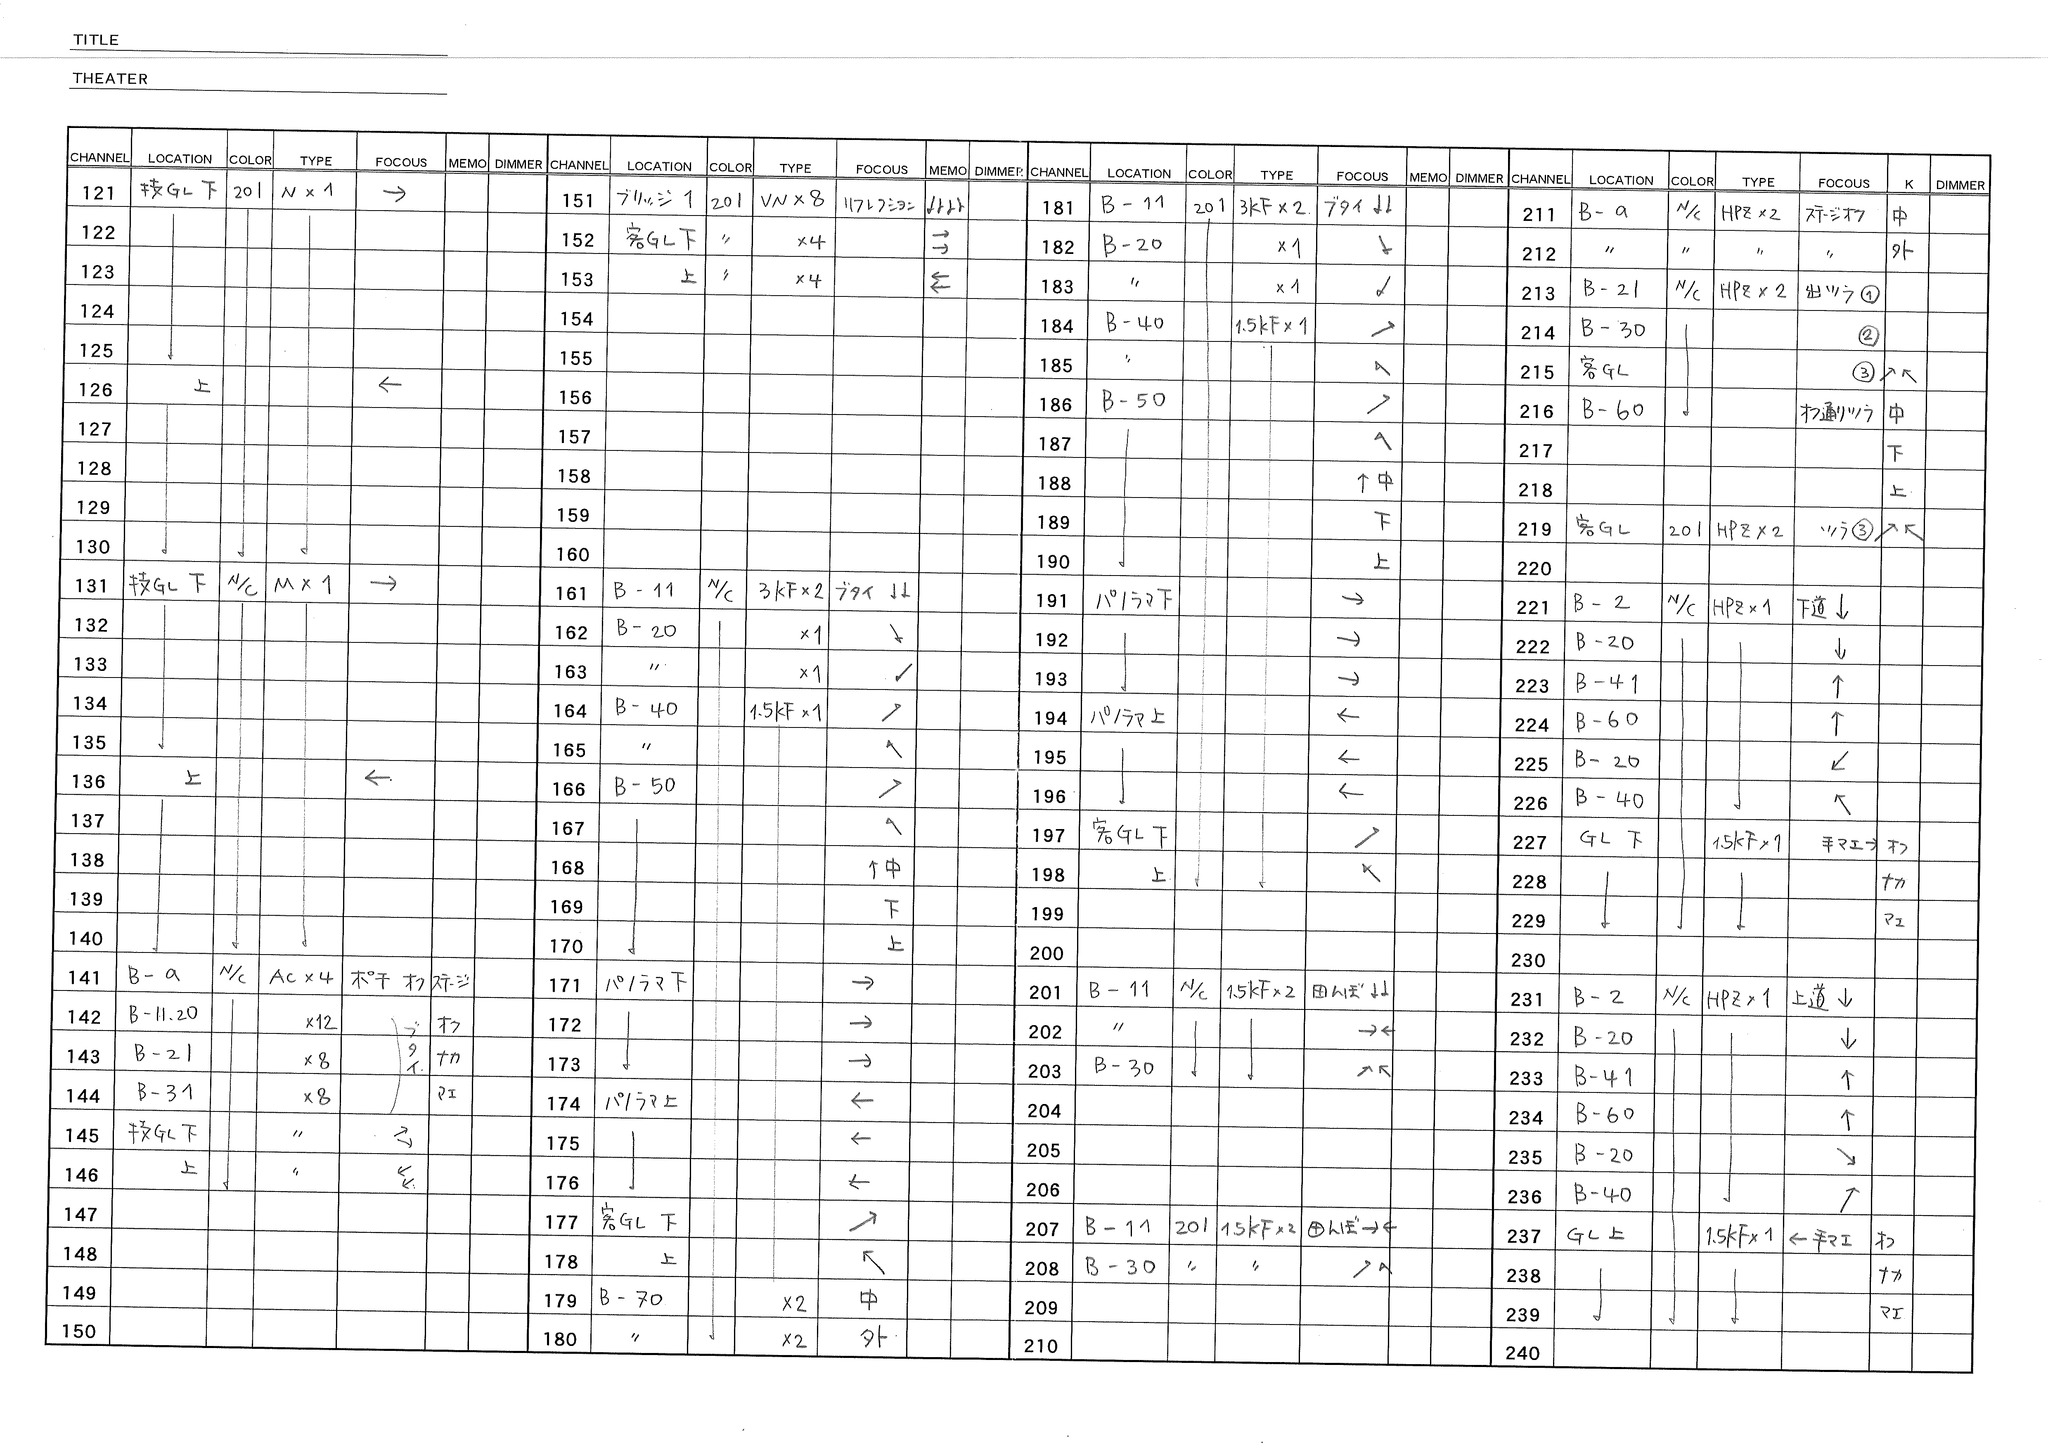 TITLE
THEATER
CHANNEL LOCATION COLOR TYPE FOCOUS MEMO DIMMER
121 技GL 下 201 N×1 →
122
123
124
125
126 上 ←
127
128
129
130
131 技GL 下 N/C M×1 →
132
133
134
135
136 上 ←
137
138
139
140
141 B-a N/C AC×4 ポチ オク ステージ
142 B-11.20 ×12 ブタイ オク
143 B-21 ×8 ナカ
144 B-31 ×8 マエ
145 技GL 下 〃 →→
146 上 〃 ←←
147
148
149
150
CHANNEL LOCATION COLOR TYPE FOCOUS MEMO DIMMER
151 ブリッジ 1 201 VN×8 リフレクション ↓↓↓↓
152 客GL 下 〃 ×4 →→
153 上 〃 ×4 ←←
154
155
156
157
158
159
160
161 B-11 N/C 3kF×2 ブタイ ↓↓
162 B-20 ×1 ↘
163 〃 ×1 ↙
164 B-40 1.5kF×1 ↗
165 〃 ↖
166 B-50 ↗
167 ↖
168 ↑中
169 下
170 上
171 パノラマ 下 →
172 →
173 →
174 パノラマ 上 ←
175 ←
176 ←
177 客GL 下 ↗
178 上 ↖
179 B-70 ×2 中
180 〃 ×2 外
CHANNEL LOCATION COLOR TYPE FOCOUS MEMO DIMMER
181 B-11 201 3kF×2 ブタイ ↓↓
182 B-20 ×1 ↘
183 〃 ×1 ↙
184 B-40 1.5kF×1 ↗
185 〃 ↖
186 B-50 ↗
187 ↖
188 ↑中
189 下
190 上
191 パノラマ 下 →
192 →
193 →
194 パノラマ 上 ←
195 ←
196 ←
197 客GL 下 ↗
198 上 ↖
199
200
201 B-11 N/C 1.5kF×2 田んぼ ↓↓
202 〃 →←
203 B-30 ↗↖
204
205
206
207 B-11 201 1.5kF×2 田んぼ→←
208 B-30 〃 〃 ↗↖
209
210
CHANNEL LOCATION COLOR TYPE FOCOUS K DIMMER
211 B-a N/C HPZ×2 ステージオク 中
212 〃 〃 〃 〃 外
213 B-21 N/C HPZ×2 出ツラ①
214 B-30 ②
215 客GL ③ ↗↖
216 B-60 オク通りツラ 中
217 下
218 上
219 客GL 201 HPZ×2 ツラ③ ↗↖
220
221 B-2 N/C HPZ×1 下道 ↓
222 B-20 ↓
223 B-41 ↑
224 B-60 ↑
225 B-20 ↙
226 B-40 ↖
227 GL 下 1.5kF×1 手マエ→ オク
228 ナカ
229 マエ
230
231 B-2 N/C HPZ×1 上道 ↓
232 B-20 ↓
233 B-41 ↑
234 B-60 ↑
235 B-20 ↘
236 B-40 ↗
237 GL 上 1.5kF×1 ←手マエ オク
238 ナカ
239 マエ
240